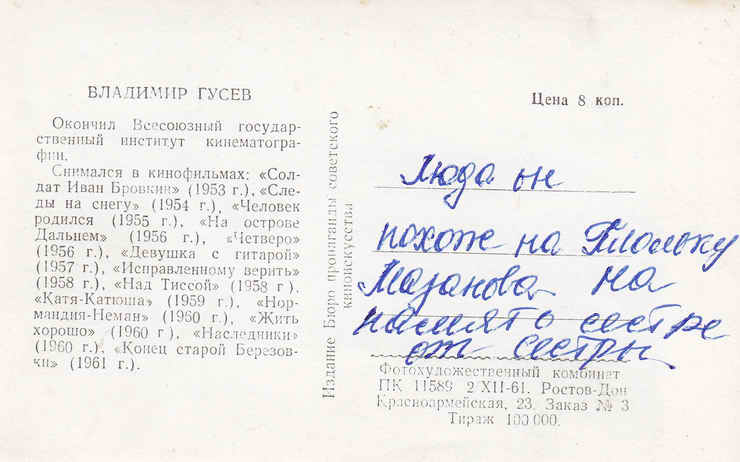 ВЛАДИМИР ГУСЕВ
Окончил Всесоюзный государ-
ственный институт кинематогра-
фии.
Снимался в кинофильмах: «Сол-
дат Иван Бровкин» (1953 г.), «Сле-
ды на снегу» (1954 г.), «Человек
родился (1955 г.), «На острове
Дальнем» (1956 г.), «Четверо»
(1956 г.), «Девушка с гитарой»
(1957 г.), «Исправленному верить»
(1958 г.), «Над Тиссой» (1958 г.),
«Катя-Катюша» (1959 г.), «Нор-
мандия-Неман» (1960 г.), «Жить
хорошо» (1960 г), «Наследники»
(1960 г.), «Конец старой Березов-
ки» (1961 г.).
Издание Бюро пропаганды советского
киноискусства
Цена 8 коп.
Люда он
похож на
Мазанова на
память сестре
от сестры
Фотохудожественный комбинат
ПК 11589 2/XII-61. Ростов-Дон
Красноармейская, 23. Заказ № 3
Тираж 100 000.